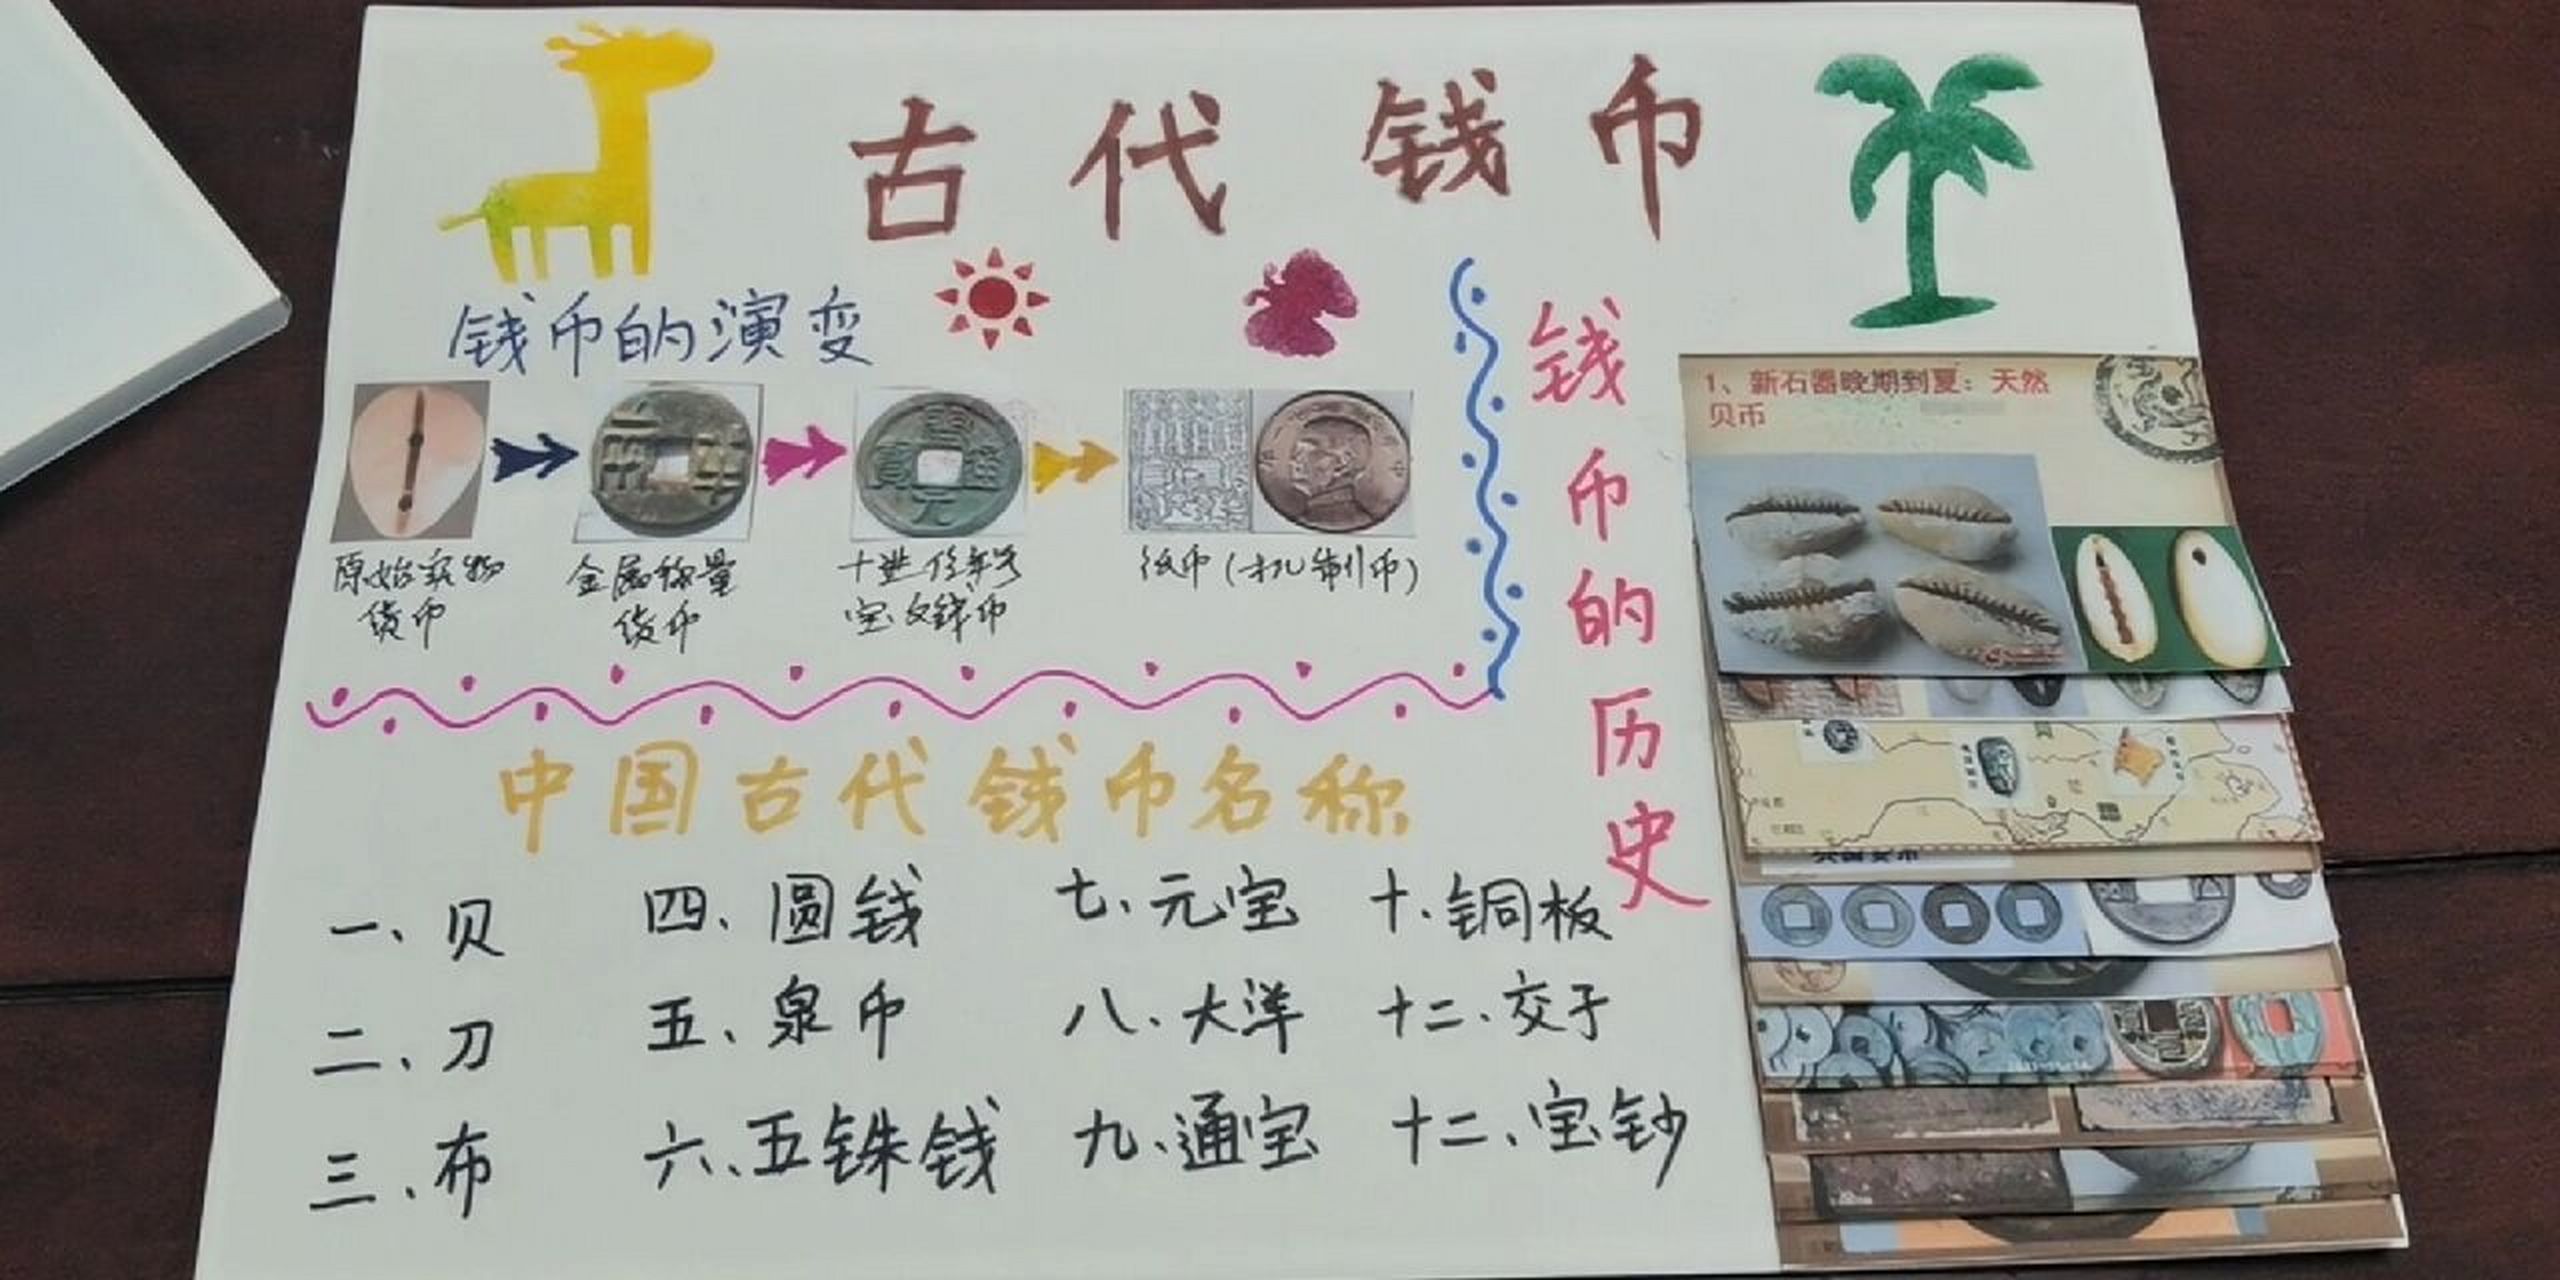 古代钱币
钱币的演变
原始实物
货币
金属称量
货币
十进位年号
宝文钱币
纸币(机制币)
钱币的历史
1、新石器晚期到夏：天然
贝币
中国古代钱币名称
一、贝
二、刀
三、布
四、圆钱
五、泉币
六、五铢钱
七、元宝
八、大洋
九、通宝
十、铜板
十二、交子
十二、宝钞